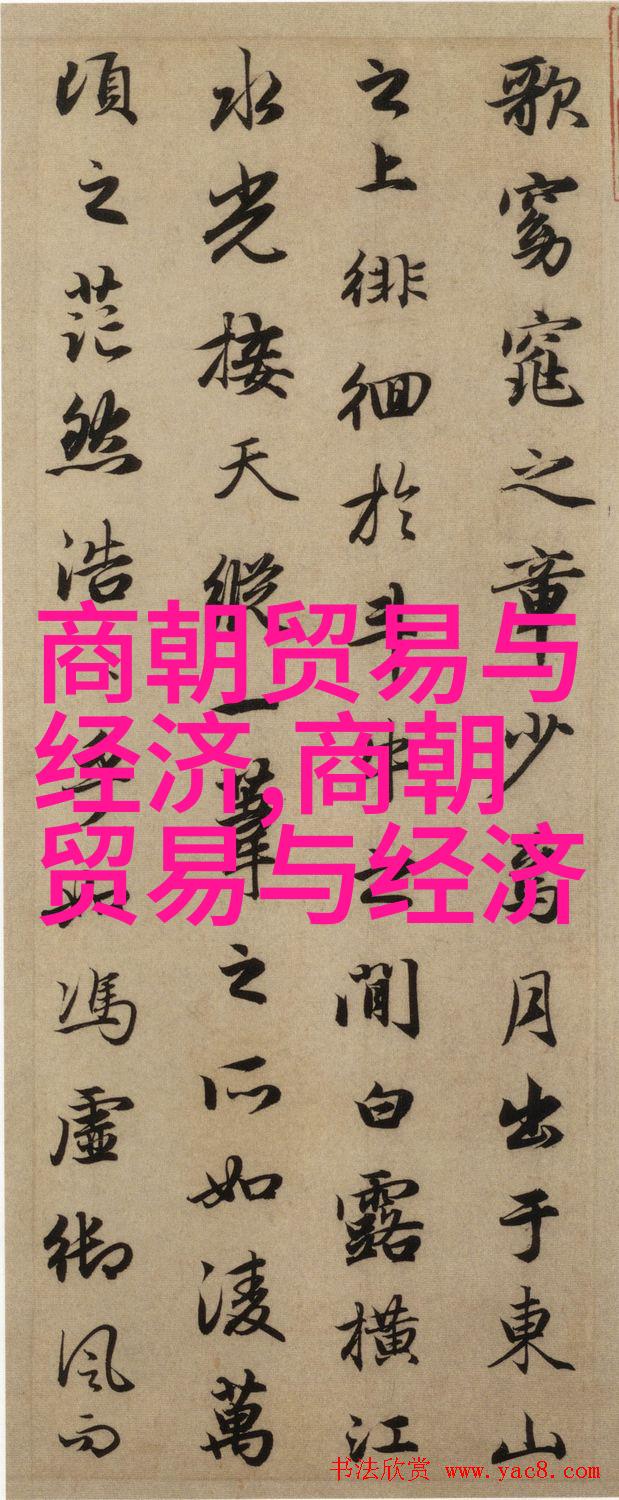 歌窈窕之章少焉月出于東山
之上徘徊於斗牛之間白露橫江
水光接天縱一葦之所如淩萬
頃之茫然浩〻乎如馮虛御風而
商朝贸易与
经济,商朝
贸易与经济
书法欣赏 www.yac8.com